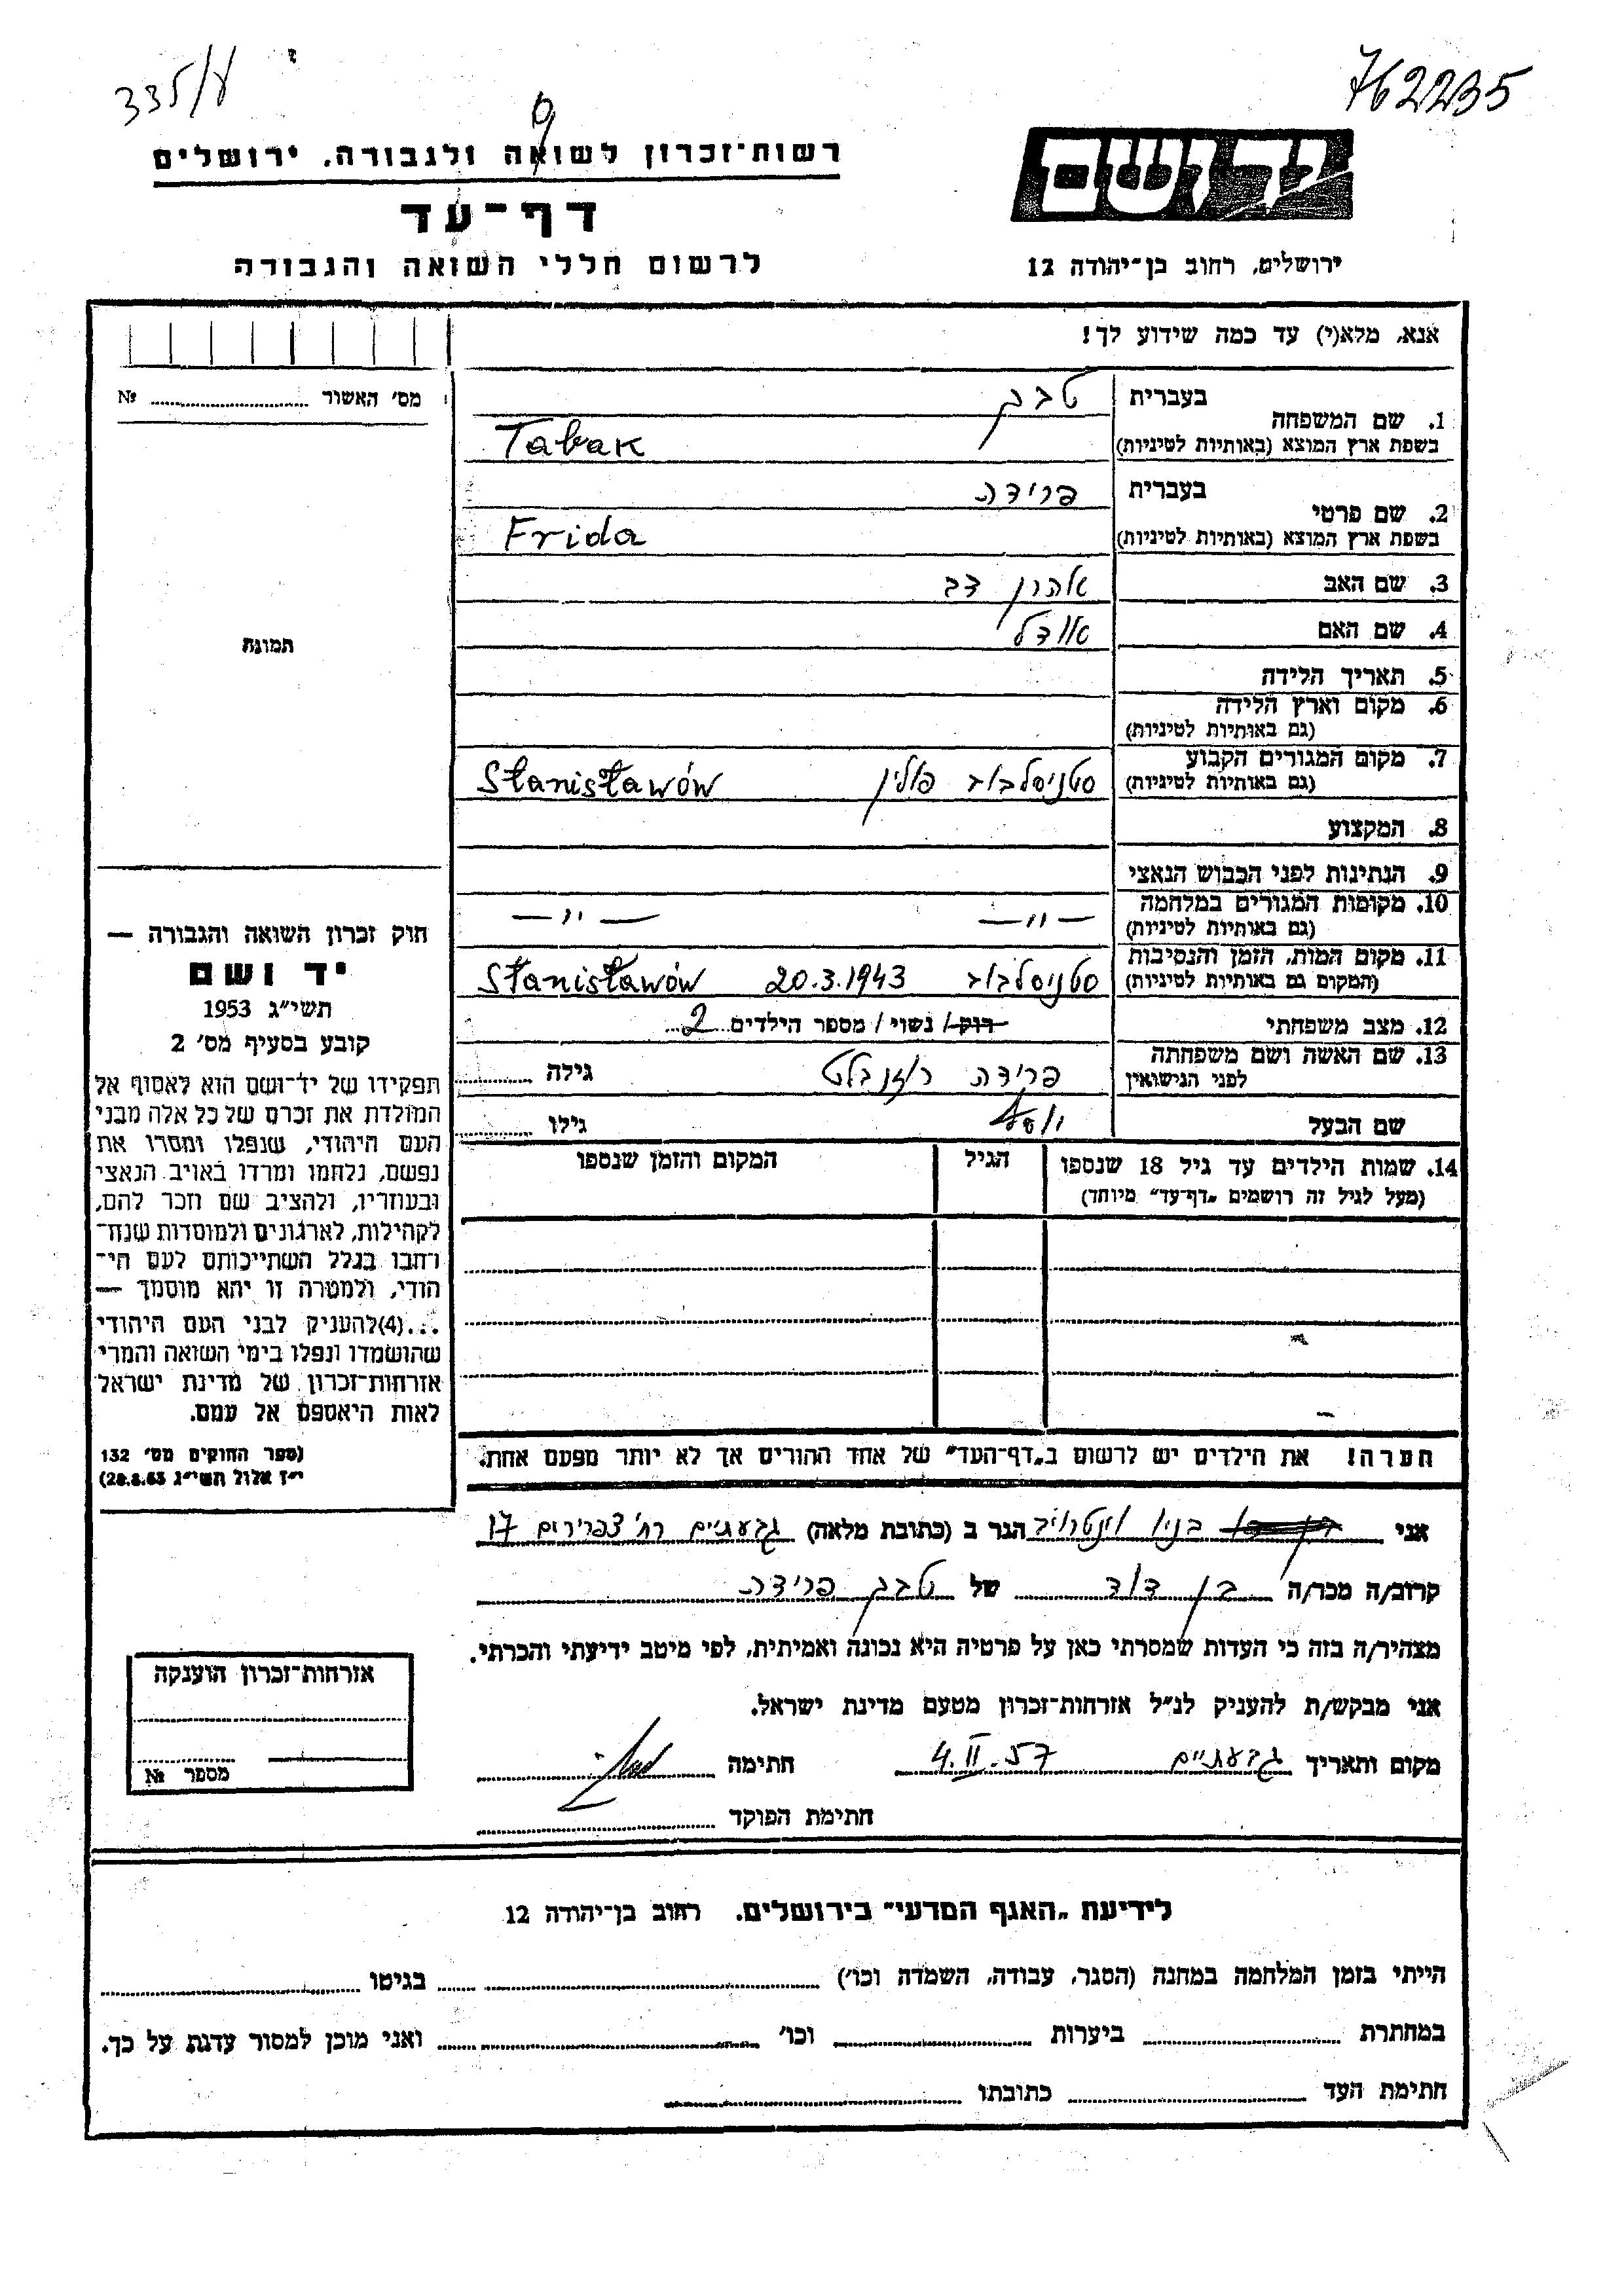 335/ע
762235
יד ושם
רשות־זכרון לשואה ולגבורה, ירושלים
דף־עד
לרשום חללי השואה והגבורה
ירושלים, רחוב בן־יהודה 12
אנא, מלא(י) עד כמה שידוע לך!
מס׳ האשור № 
1. שם המשפחה בעברית טבק
בשפת ארץ המוצא (באותיות לטיניות) Tabak
2. שם פרטי בעברית פרידה
בשפת ארץ המוצא (באותיות לטיניות) Frida
3. שם האב אהרון דב
4. שם האם אודל
תמונה
5. תאריך הלידה
6. מקום וארץ הלידה
(גם באותיות לטיניות)
7. מקום המגורים הקבוע סטניסלבוב פולין Stanisławów
(גם באותיות לטיניות)
8. המקצוע
9. הנתינות לפני הכבוש הנאצי
10. מקומות המגורים במלחמה — " — — " —
(גם באותיות לטיניות)
11. מקום המות, הזמן והנסיבות סטניסלבוב 20.3.1943 Stanisławów
(המקום גם באותיות לטיניות)
12. מצב משפחתי רוק/ נשוי/ מספר הילדים 2
13. שם האשה ושם משפחתה פרידה רוזנבלט גילה
לפני הנישואין
שם הבעל יוסף גילו
14. שמות הילדים עד גיל 18 שנספו הגיל המקום והזמן שנספו
(מעל לגיל זה רושמים „דף־עד״ מיוחד)
הערה! את הילדים יש לרשום ב„דף־העד״ של אחד ההורים אך לא יותר מפעם אחת.
חוק זכרון השואה והגבורה —
יד ושם
תשי״ג 1953
קובע בסעיף מס׳ 2
תפקידו של יד־ושם הוא לאסוף אל
המולדת את זכרם של כל אלה מבני
העם היהודי, שנפלו ומסרו את
נפשם, נלחמו ומרדו באויב הנאצי
ובעוזריו, ולהציב שם וזכר להם,
לקהילות, לארגונים ולמוסדות שנח־
רבו בגלל השתייכותם לעם הי־
הודי, ולמטרה זו יהא מוסמך —
...(4)להעניק לבני העם היהודי
שהושמדו ונפלו בימי השואה והמרי
אזרחות־זכרון של מדינת ישראל
לאות היאספם אל עמם.
(ספר החוקים מס׳ 132
י״ז אלול תשי״ג 28.8.53)
אני בניו וינטרויב הגר ב (כתובת מלאה) גבעתיים רח׳ צפרירים 17
קרוב/ה מכר/ה בן דוד של טבק פרידה
מצהיר/ה בזה כי העדות שמסרתי כאן על פרטיה היא נכונה ואמיתית, לפי מיטב ידיעתי והכרתי.
אני מבקש/ת להעניק לנ״ל אזרחות־זכרון מטעם מדינת ישראל.
מקום ותאריך גבעתיים 4.II.57 חתימה
חתימת הפוקד
אזרחות־זכרון הוענקה
מספר №
לידיעת „האגף המדעי״ בירושלים, רחוב בן־יהודה 12
הייתי בזמן המלחמה במחנה (הסגר, עבודה, השמדה וכו׳) בגיטו
במחתרת ביערות וכו׳ ואני מוכן למסור עדות על כך.
חתימת העד כתובתו